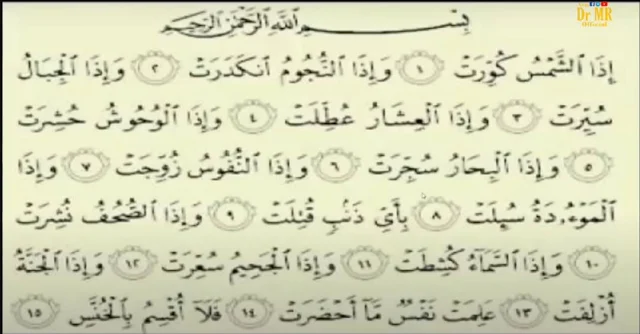 Dr MR
Official
بِسْمِ ٱللَّهِ ٱلرَّحْمَٰنِ ٱلرَّحِيمِ
إِذَا ٱلشَّمْسُ كُوِّرَتْ ١ وَإِذَا ٱلنُّجُومُ ٱنكَدَرَتْ ٢ وَإِذَا ٱلْجِبَالُ
سُيِّرَتْ ٣ وَإِذَا ٱلْعِشَارُ عُطِّلَتْ ٤ وَإِذَا ٱلْوُحُوشُ حُشِرَتْ
٥ وَإِذَا ٱلْبِحَارُ سُجِّرَتْ ٦ وَإِذَا ٱلنُّفُوسُ زُوِّجَتْ ٧ وَإِذَا
ٱلْمَوْءُۥدَةُ سُئِلَتْ ٨ بِأَيِّ ذَنۢبٍ قُتِلَتْ ٩ وَإِذَا ٱلصُّحُفُ نُشِرَتْ
١٠ وَإِذَا ٱلسَّمَآءُ كُشِطَتْ ١١ وَإِذَا ٱلْجَحِيمُ سُعِّرَتْ ١٢ وَإِذَا ٱلْجَنَّةُ
أُزْلِفَتْ ١٣ عَلِمَتْ نَفْسٌ مَّآ أَحْضَرَتْ ١٤ فَلَآ أُقْسِمُ بِٱلْخُنَّسِ ١٥